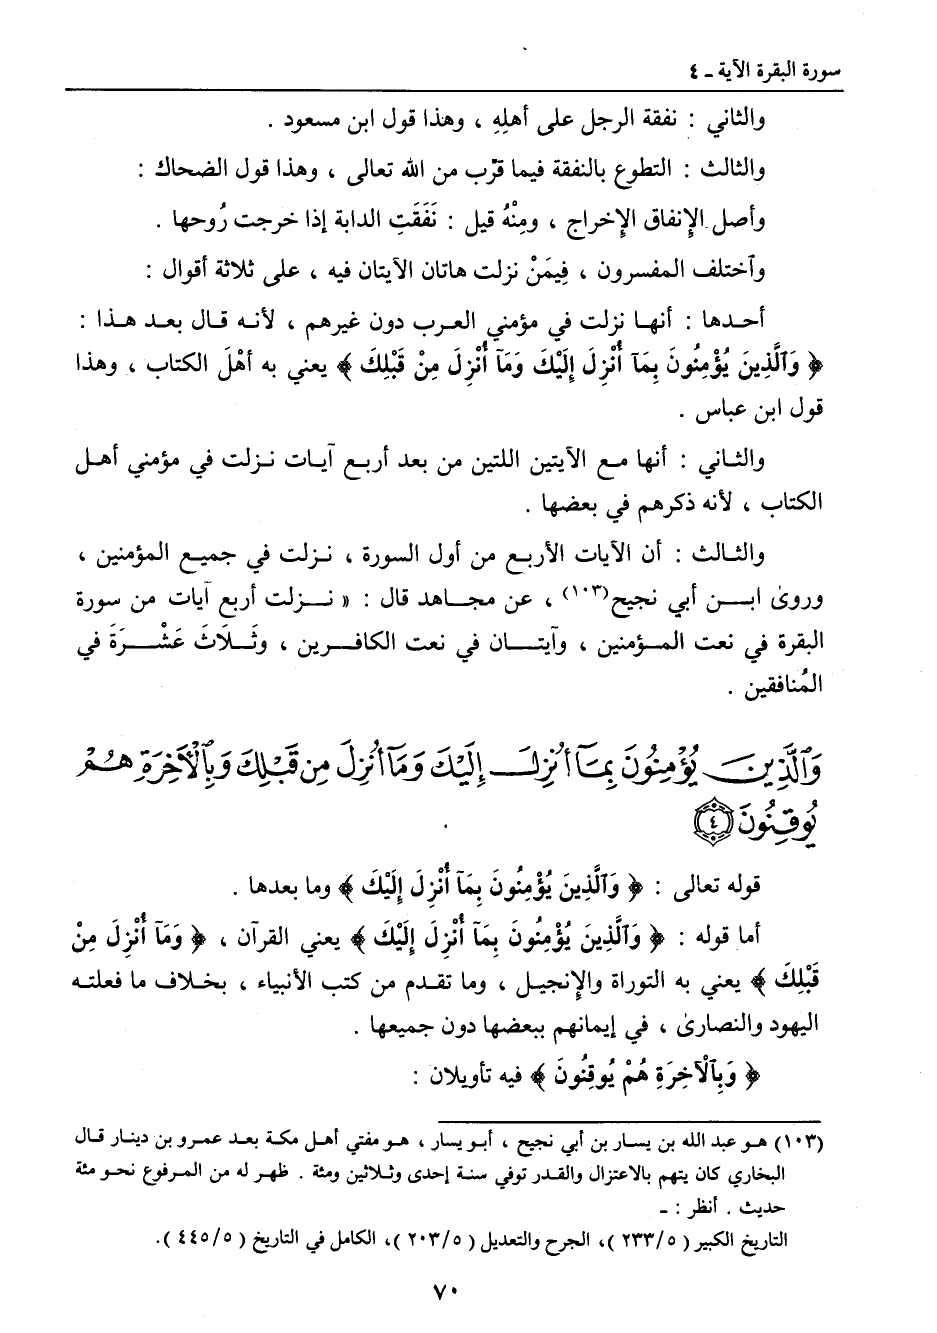 سورة البقرة الآية ـ ٤
والثاني : نفقة الرجل على أهلِهِ ، وهذا قول ابن مسعود .
والثالث : التطوع بالنفقة فيما قرّب من الله تعالى ، وهذا قول الضحاك :
وأصل الإنفاق الإخراج ، ومِنْهُ قيل : نَفَقَتِ الدابة إذا خرجت رُوحها .
وٱختلف المفسرون ، فِيمَنْ نزلت هاتان الآيتان فيه ، على ثلاثة أقوال :
أحدها : أنها نزلت في مؤمني العرب دون غيرهم ، لأنه قال بعد هذا :
﴿ وَٱلَّذِينَ يُؤْمِنُونَ بِمَآ أُنْزِلَ إِلَيْكَ وَمَآ أُنْزِلَ مِنْ قَبْلِكَ ﴾ يعني به أهْلَ الكتاب ، وهذا
قول ابن عباس .
والثاني : أنها مع الآيتين اللتين من بعد أربع آيات نزلت في مؤمني أهل
الكتاب ، لأنه ذكرهم في بعضها .
والثالث : أن الآيات الأربع من أول السورة ، نزلت في جميع المؤمنين ،
وروىٰ ابن أبي نجيح(١٠٣) ، عن مجاهد قال : « نزلت أربع آيات من سورة
البقرة في نعت المؤمنين ، وآيتان في نعت الكافرين ، وثَلَاثَ عَشْرَةَ في
المُنافقين .
وَٱلَّذِينَ يُؤْمِنُونَ بِمَآ أُنزِلَ إِلَيْكَ وَمَآ أُنزِلَ مِن قَبْلِكَ وَبِٱلْأَخِرَةِ هُمْ
يُوقِنُونَ ٤
قوله تعالى : ﴿ وَٱلَّذِينَ يُؤْمِنُونَ بِمَآ أُنْزِلَ إِلَيْكَ ﴾ وما بعدها .
أما قوله : ﴿ وَٱلَّذِينَ يُؤْمِنُونَ بِمَآ أُنْزِلَ إِلَيْكَ ﴾ يعني القرآن ، ﴿ وَمَآ أُنْزِلَ مِنْ
قَبْلِكَ ﴾ يعني به التوراة والإنجيل ، وما تقدم من كتب الأنبياء ، بخلاف ما فعلته
اليهود والنصارىٰ ، في إيمانهم ببعضها دون جميعها .
﴿ وَبِٱلْآخِرَةِ هُمْ يُوقِنُونَ ﴾ فيه تأويلان :
(١٠٣) هو عبد الله بن يسار بن أبي نجيح ، أبو يسار ، هو مفتي أهل مكة بعد عمرو بن دينار قال
البخاري كان يتهم بالاعتزال والقدر توفي سنة إحدى وثلاثين ومئة . ظهر له من المرفوع نحو مئة
حديث . أنظر : ـ
التاريخ الكبير ( ٢٣٣/٥ )، الجرح والتعديل ( ٢٠٣/٥ )، الكامل في التاريخ ( ٤٤٥/٥ ).
٧٠